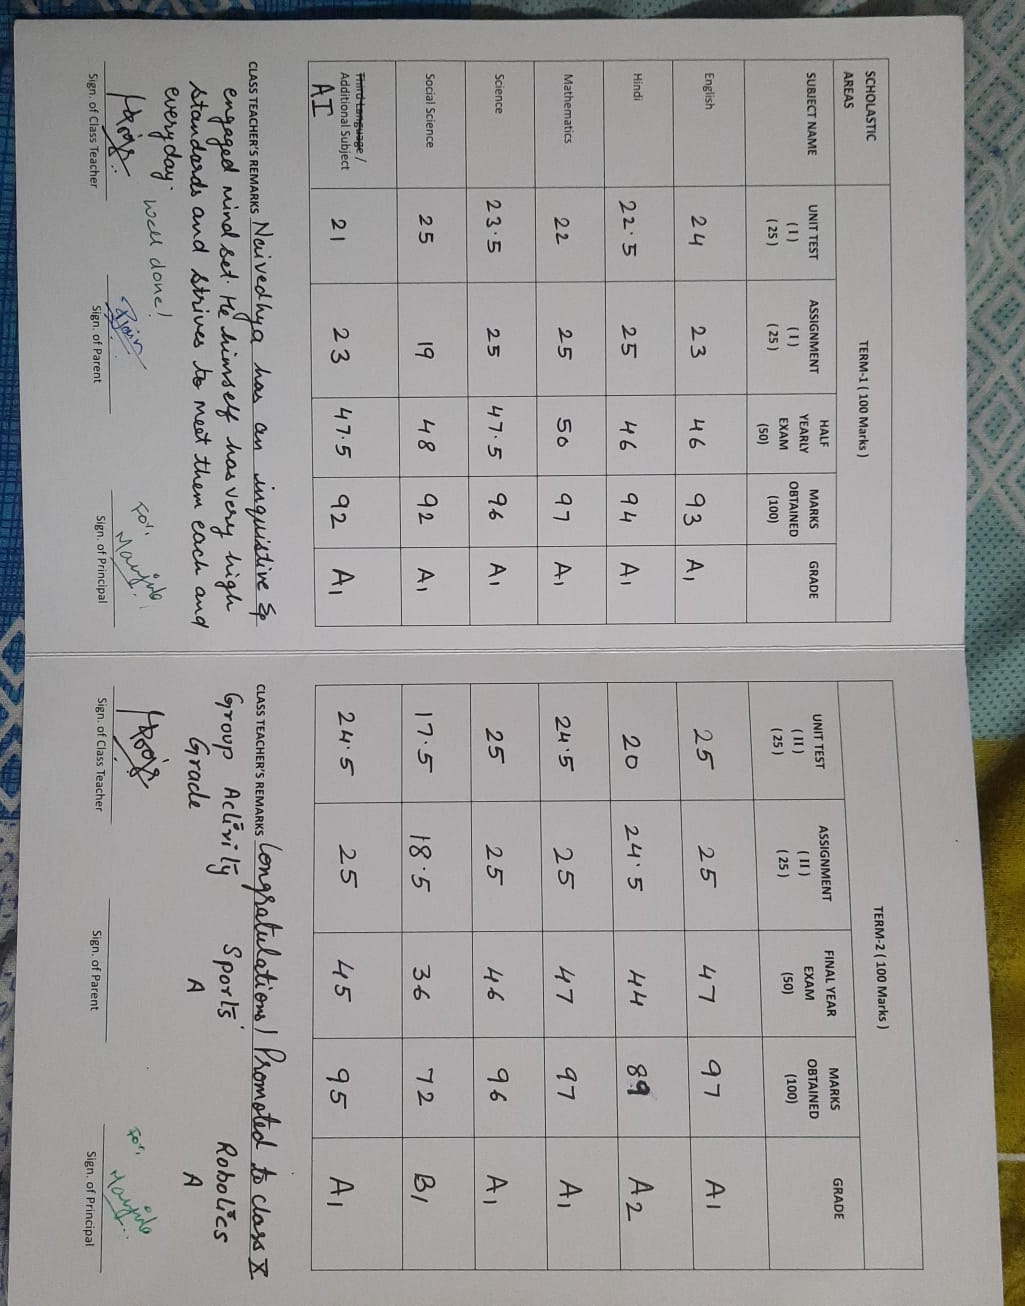 SCHOLASTIC AREAS
TERM-1 ( 100 Marks )
SUBJECT NAME UNIT TEST ( I ) ( 25 ) ASSIGNMENT ( I ) ( 25 ) HALF YEARLY EXAM (50) MARKS OBTAINED (100) GRADE
English 24 23 46 93 A1
Hindi 22.5 25 46 94 A1
Mathematics 22 25 50 97 A1
Science 23.5 25 47.5 96 A1
Social Science 25 19 48 92 A1
Third Language / Additional Subject AI 21 23 47.5 92 A1
CLASS TEACHER'S REMARKS Naivedhya has an inquistive &
engaged mind set. He himself has very high
standards and strives to meet them each and
everyday. Well done!
For,
Sign. of Class Teacher Sign. of Parent Sign. of Principal
TERM-2 ( 100 Marks )
UNIT TEST ( II ) ( 25 ) ASSIGNMENT ( II ) ( 25 ) FINAL YEAR EXAM (50) MARKS OBTAINED (100) GRADE
25 25 47 97 A1
20 24.5 44 89 A2
24.5 25 47 97 A1
25 25 46 96 A1
17.5 18.5 36 72 B1
24.5 25 45 95 A1
CLASS TEACHER'S REMARKS Congratulations! Promoted to class X
Group Activity Sports Robotics
Grade A A
For,
Sign. of Class Teacher Sign. of Parent Sign. of Principal